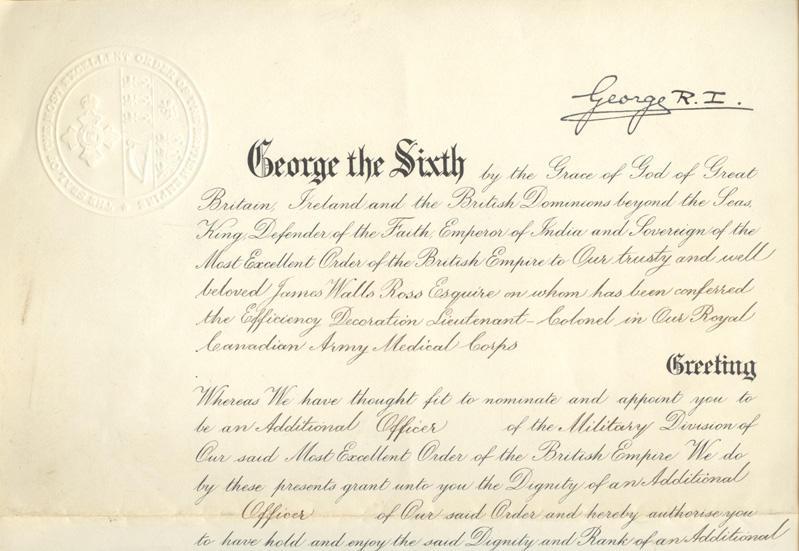 THE SEAL OF THE MOST EXCELLENT ORDER OF THE BRITISH EMPIRE
George R.I.
George the Sixth by the Grace of God of Great
Britain, Ireland and the British Dominions beyond the Seas,
King, Defender of the Faith, Emperor of India and Sovereign of the
Most Excellent Order of the British Empire to Our trusty and well
beloved James Walls Ross Esquire on whom has been conferred
the Efficiency Decoration Lieutenant-Colonel in Our Royal
Canadian Army Medical Corps
Greeting
Whereas We have thought fit to nominate and appoint you to
be an Additional Officer of the Military Division of
Our said Most Excellent Order of the British Empire We do
by these presents grant unto you the Dignity of an Additional
Officer of Our said Order and hereby authorise you
to have hold and enjoy the said Dignity and Rank of an Additional